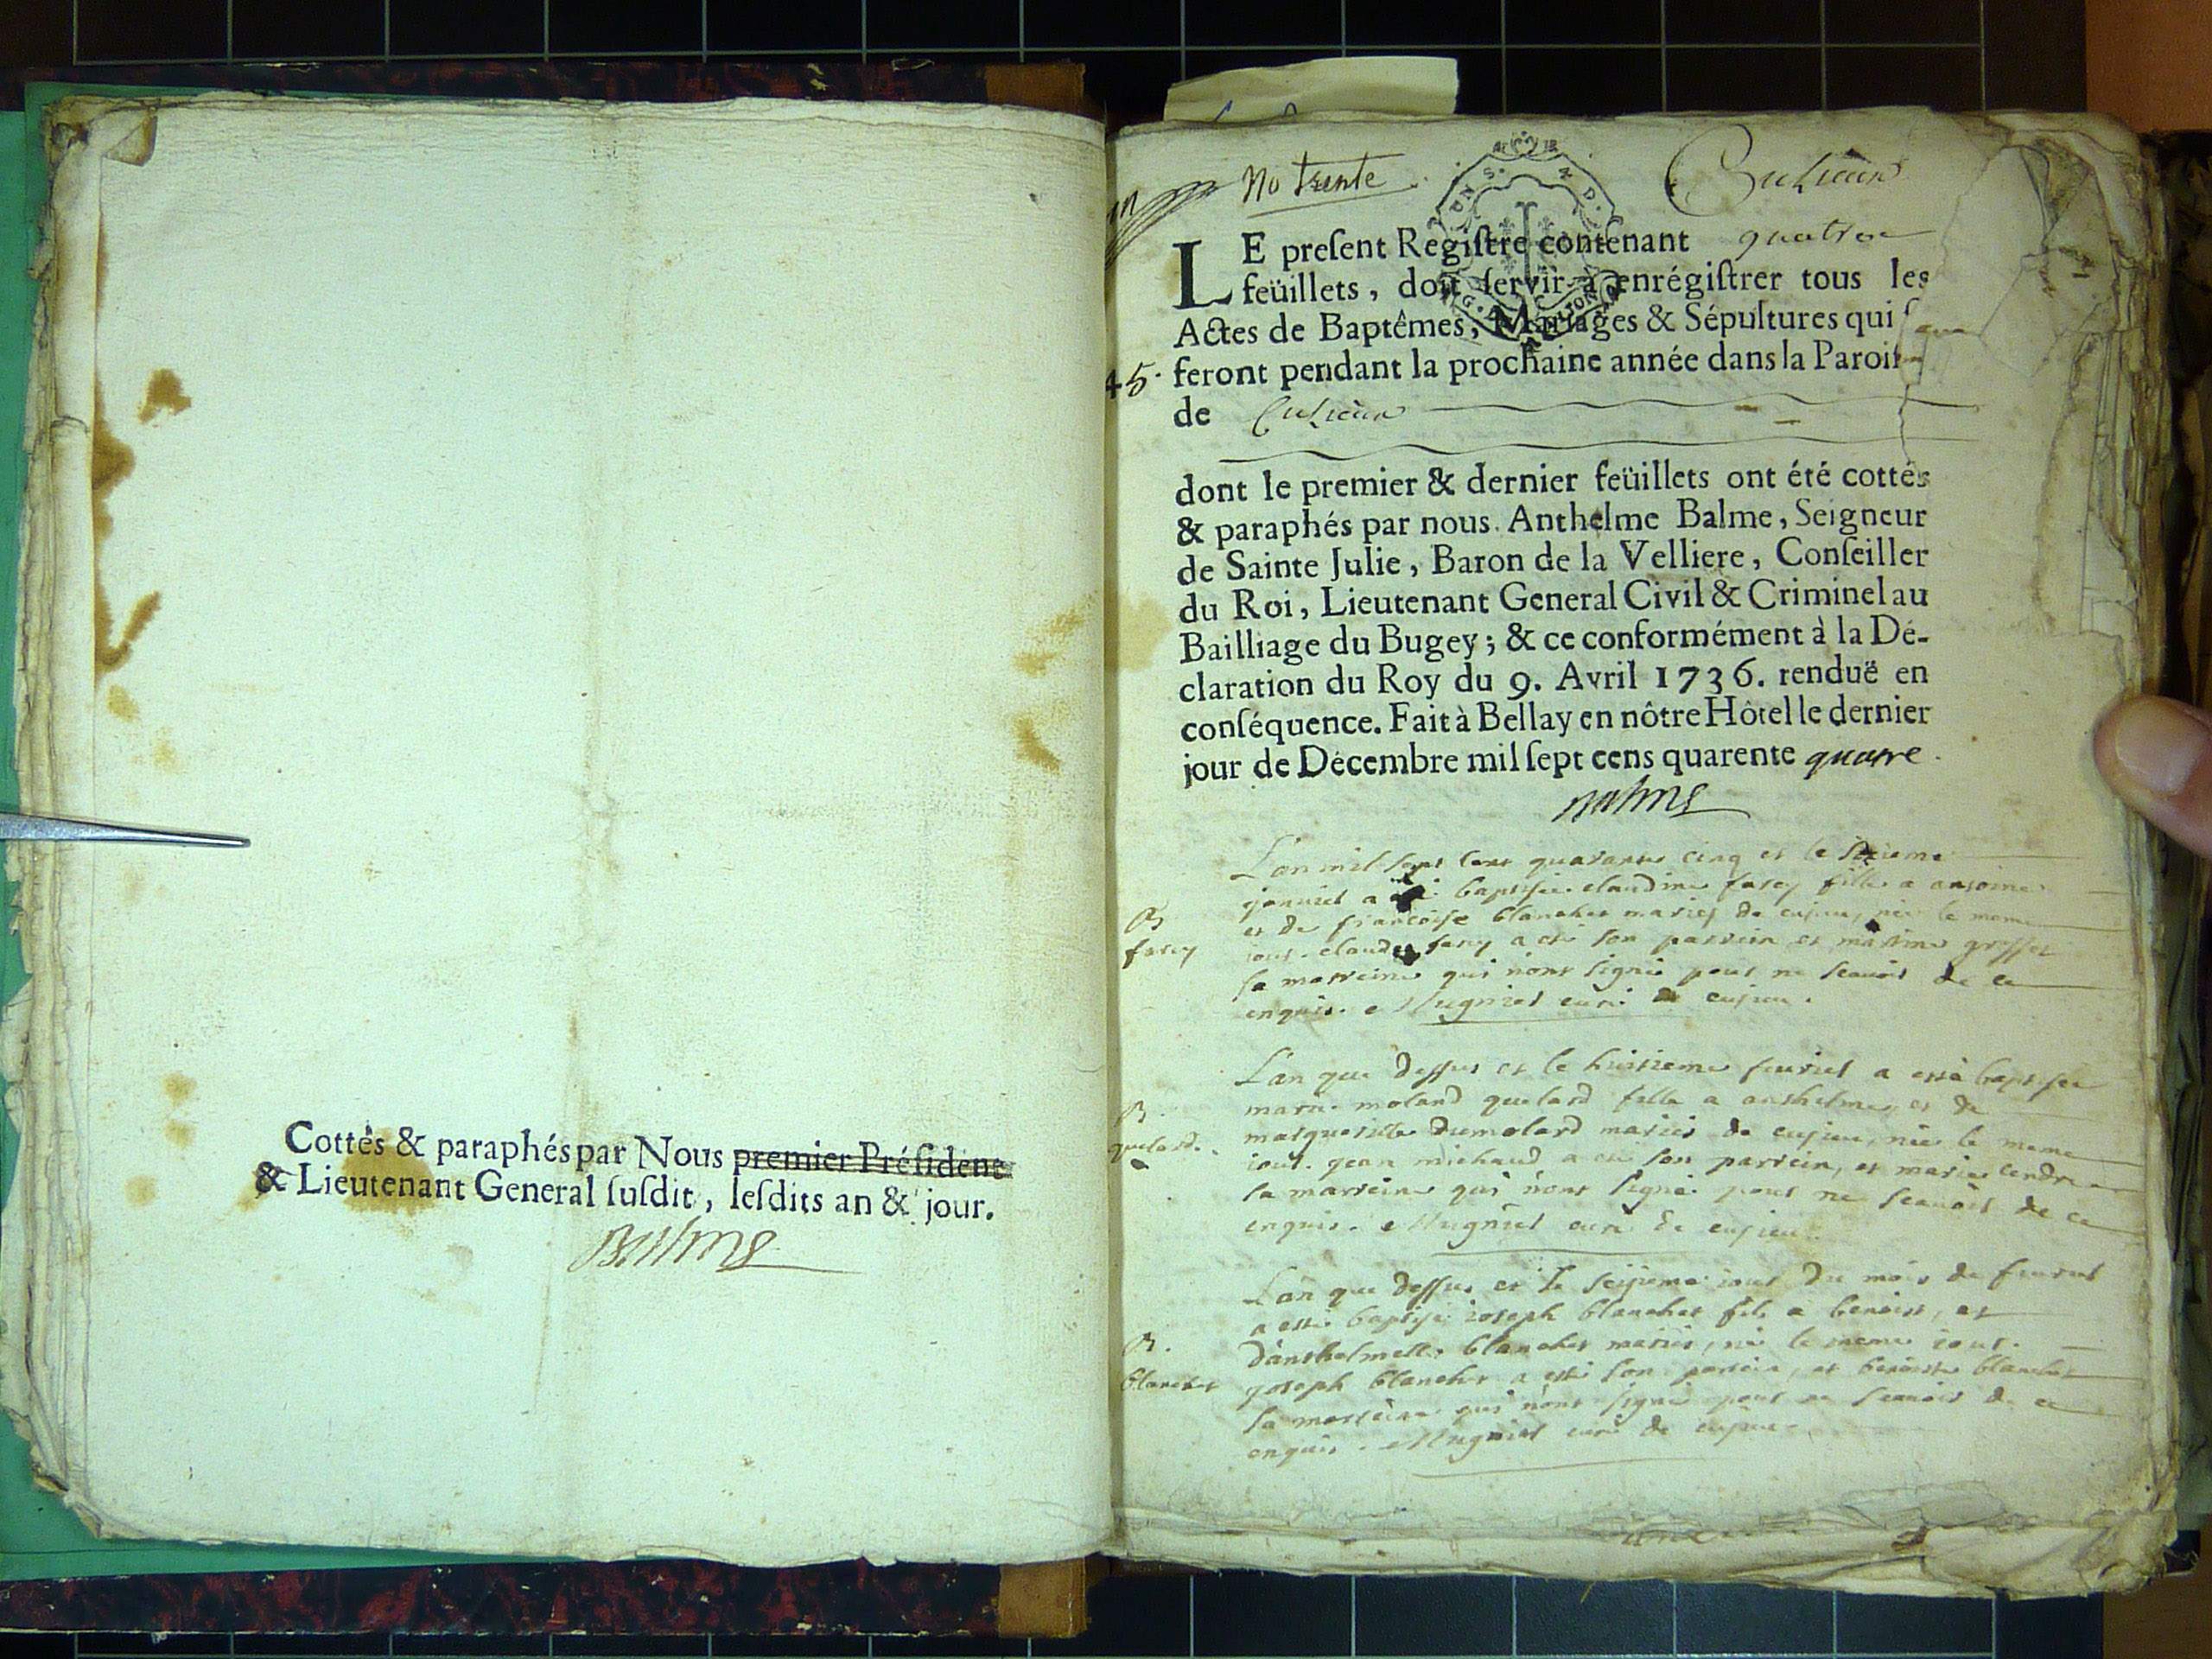 Cottés & paraphés par Nous premier Préſident
& Lieutenant General ſuſdit, leſdits an & jour.
Balme
No trente
Cuzieux
LE preſent Regiſtre contenant quatre
feüillets, doit ſervir à enrégiſtrer tous les
Actes de Baptêmes, Mariages & Sépultures qui ſe
45.
feront pendant la prochaine année dans la Paroiſ
de Cuzieux
dont le premier & dernier feüillets ont été cottés
& paraphés par nous Anthelme Balme, Seigneur
de Sainte Julie, Baron de la Velliere, Conſeiller
du Roi, Lieutenant General Civil & Criminel au
Bailliage du Bugey; & ce conformément à la Dé-
claration du Roy du 9. Avril 1736. renduë en
conſéquence. Fait à Bellay en nôtre Hôtel le dernier
jour de Décembre mil ſept cens quarente quatre.
Balme
L'an mil sept cent quarante cinq et le
janvier a baptisée claudine farcy fille a antoine
B
et de francoise blanchet mariés de cujeu, née le meme
farcy
jour. claude farcy a été son parrein et grosset
la marreine qui n'ont signé pour ne scavoir de ce
enquis. Mugniet curé de cujeu.
L'an que dessus et le huitieme fevrier a esté baptisée
B.
marie molard quelard fille a anthelme et de
quelard.
margueritte dumolard mariés de cujeu, née le meme
jour. jean michaud a eté son parrein, et marie
la marreine qui n'ont signé pour ne scavoir de ce
enquis. Mugniet curé de cujeu.
L'an que dessus et le seizieme jour du mois de fevrier
a esté baptisé joseph blanchet fils a benoist, et
B.
d'anthelmette blanchet mariés, né le meme jour.
blanchet
joseph blanchet a esté son parrein, et benoiste blanchet
la marreine qui n'ont signé pour ne scavoir de ce
enquis. Mugniet curé de cujeu.